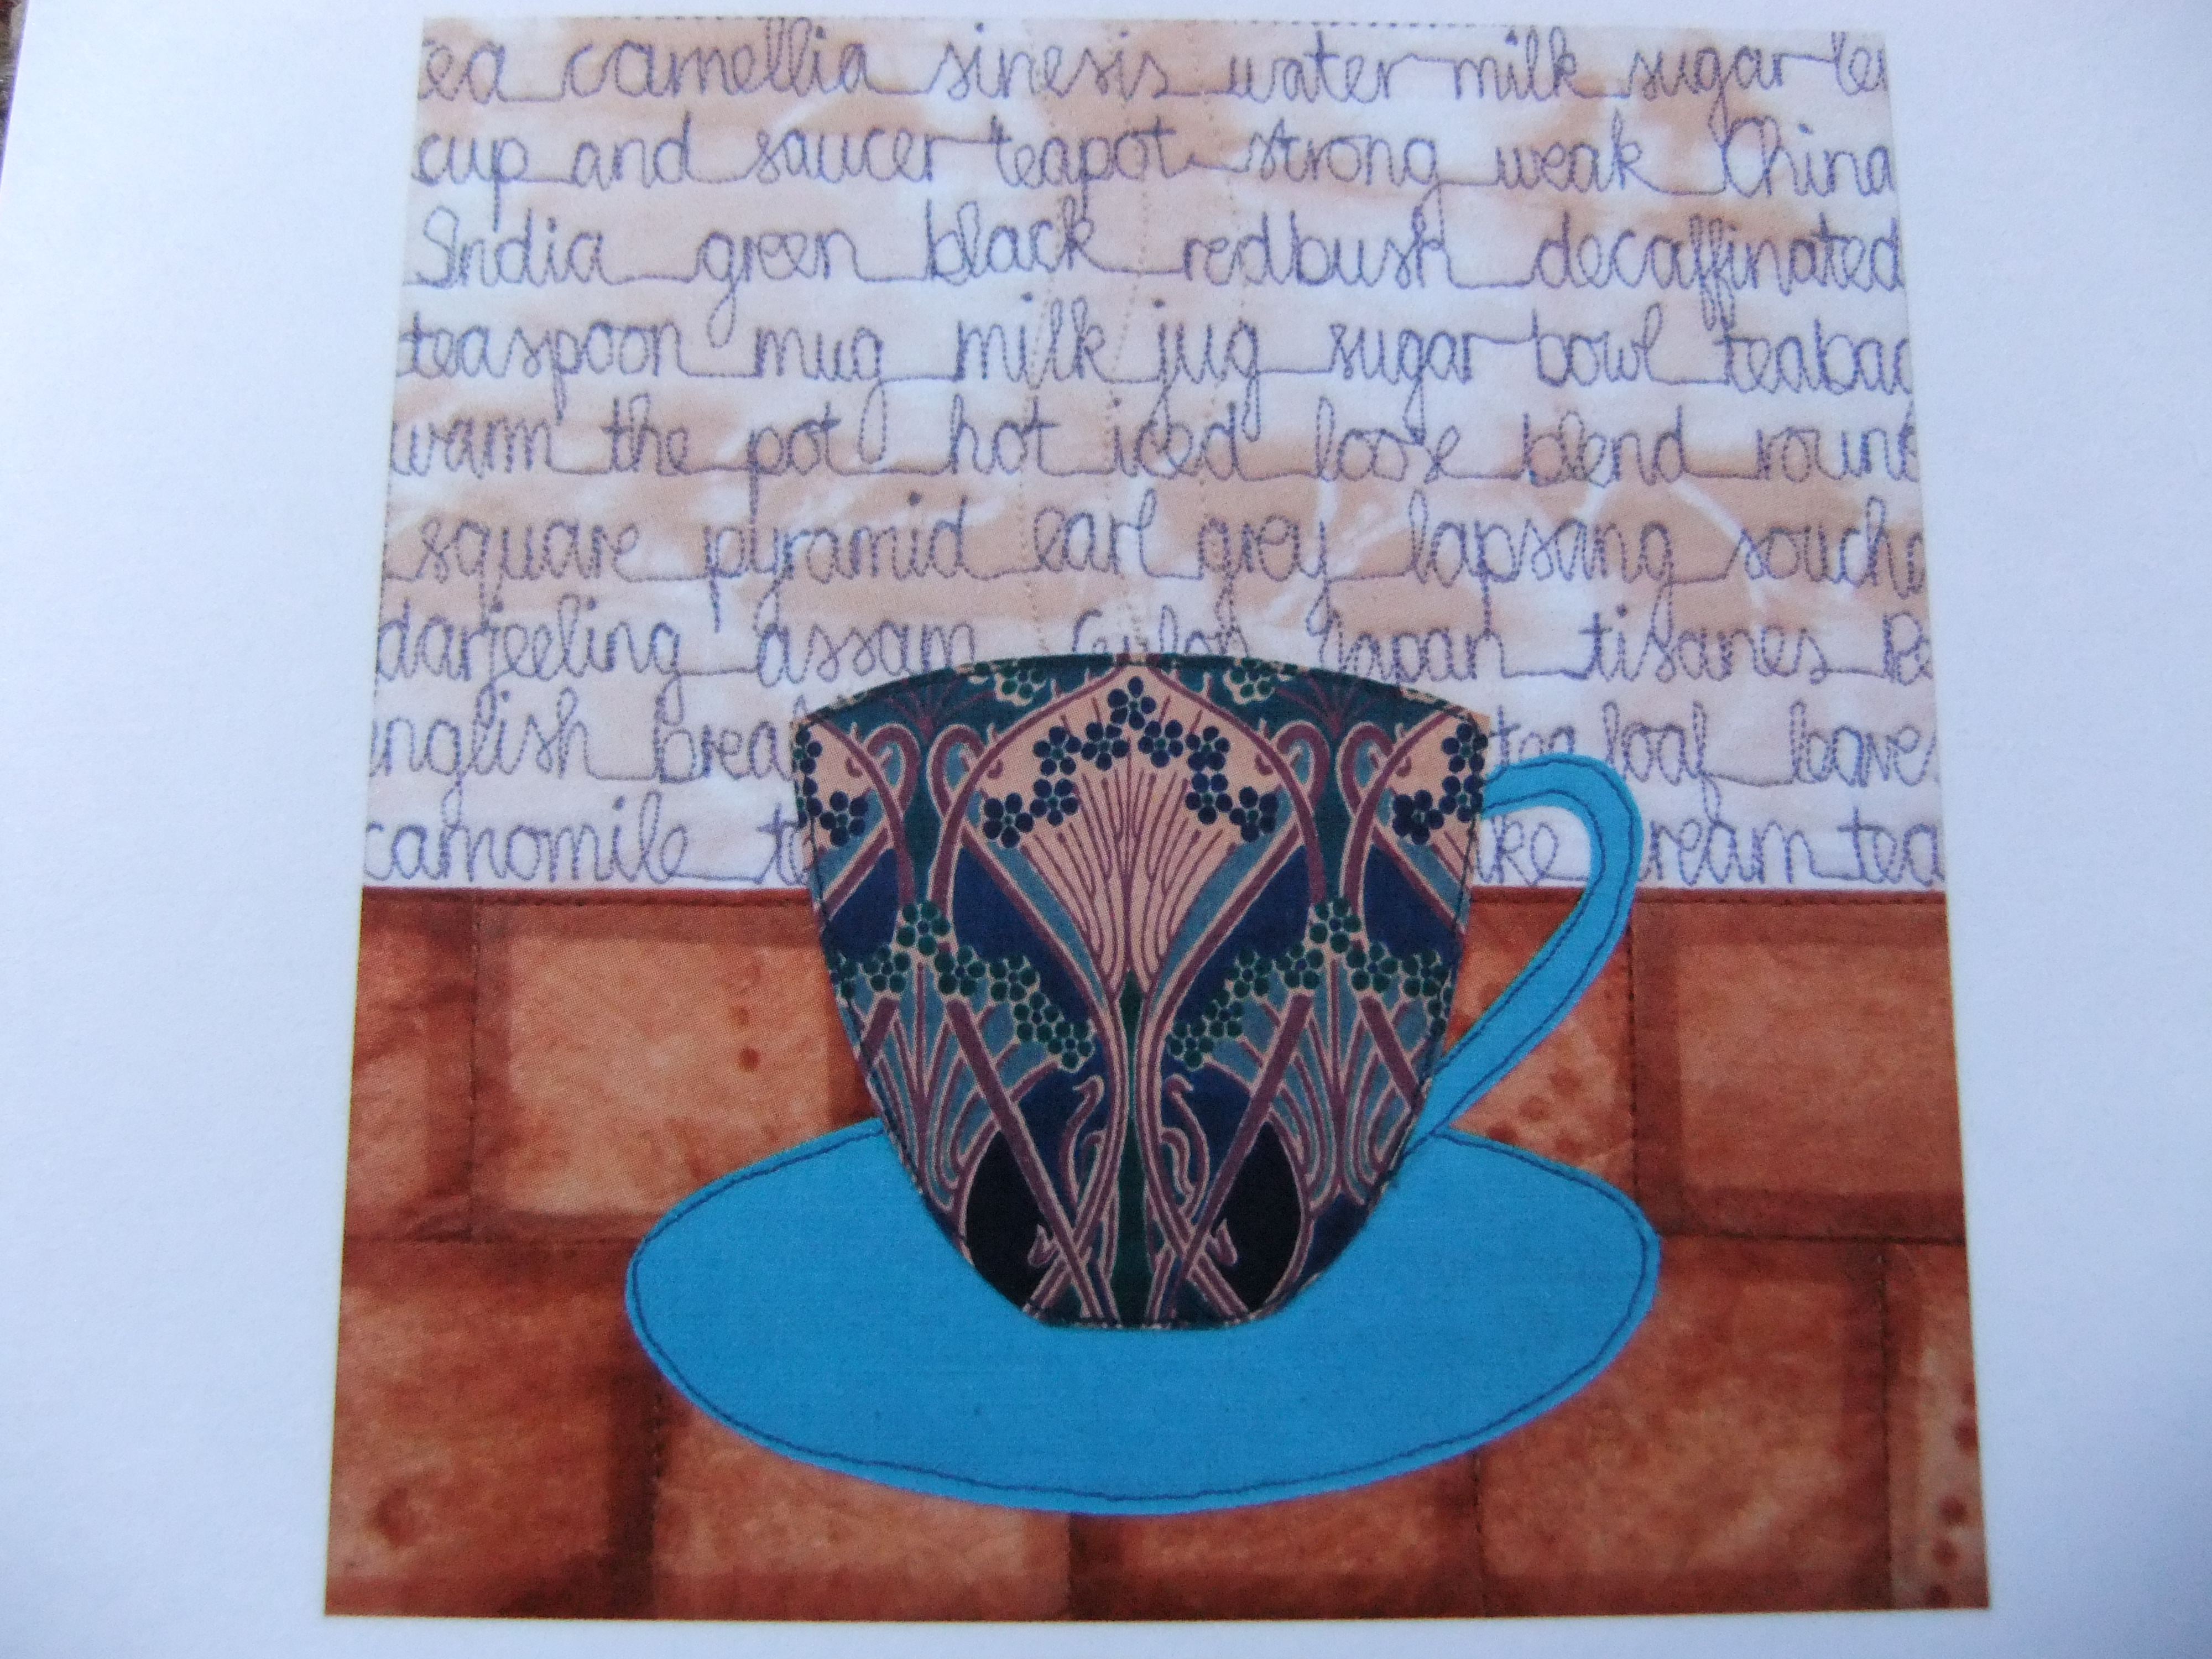 tea camellia sinesis water milk sugar
cup and saucer teapot strong weak China
India green black redbush decaffinated
teaspoon mug milk jug sugar bowl teabag
warm the pot hot iced loose blend round
square pyramid earl grey lapsang
darjeeling assam Ceylon Japan tisanes
english tea loaf
camomile cream tea